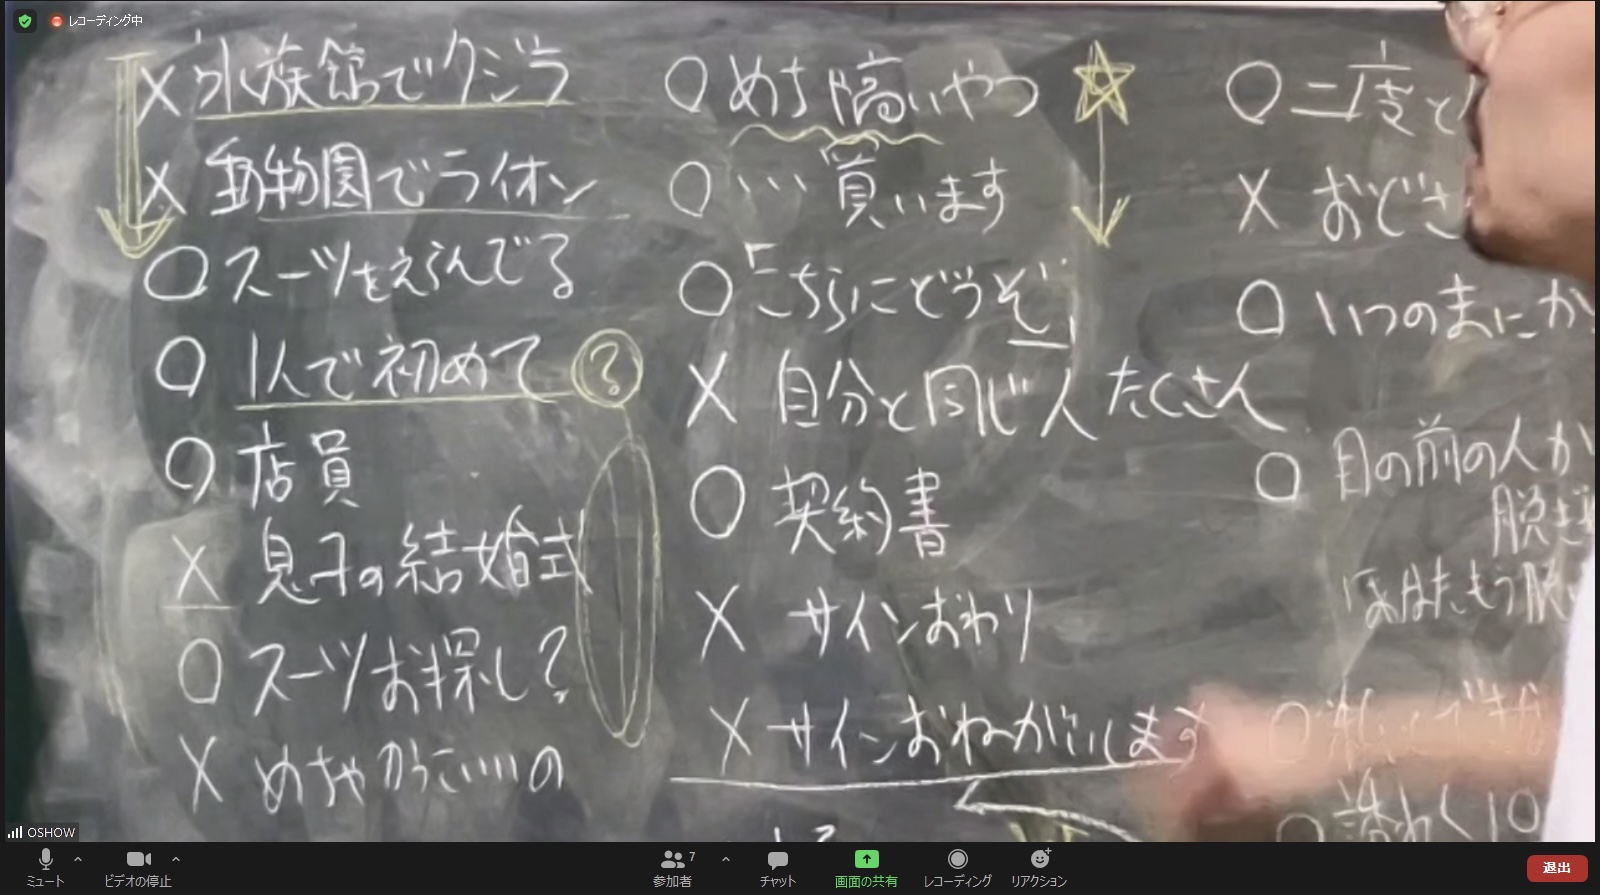 レコーディング中
X 水族館でクジラ
X 動物園でライオン
○ スーツをえらんでる
○ 1人で初めて ?
○ 店員
X 息子の結婚式
○ スーツお探し?
X めちゃかっこいいの
○ めち高いやつ
○ … 買います
○ 「こちらにどうぞ」
X 自分と同じ人たくさん
○ 契約書
X サインおわり
X サインおねがいします
○ 二度と
X おどさ
○ いつのまにか
○ 目の前の人が
脱ぎ
OSHOW
ミュート
ビデオの停止
7
参加者
チャット
画面の共有
レコーディング
リアクション
退出